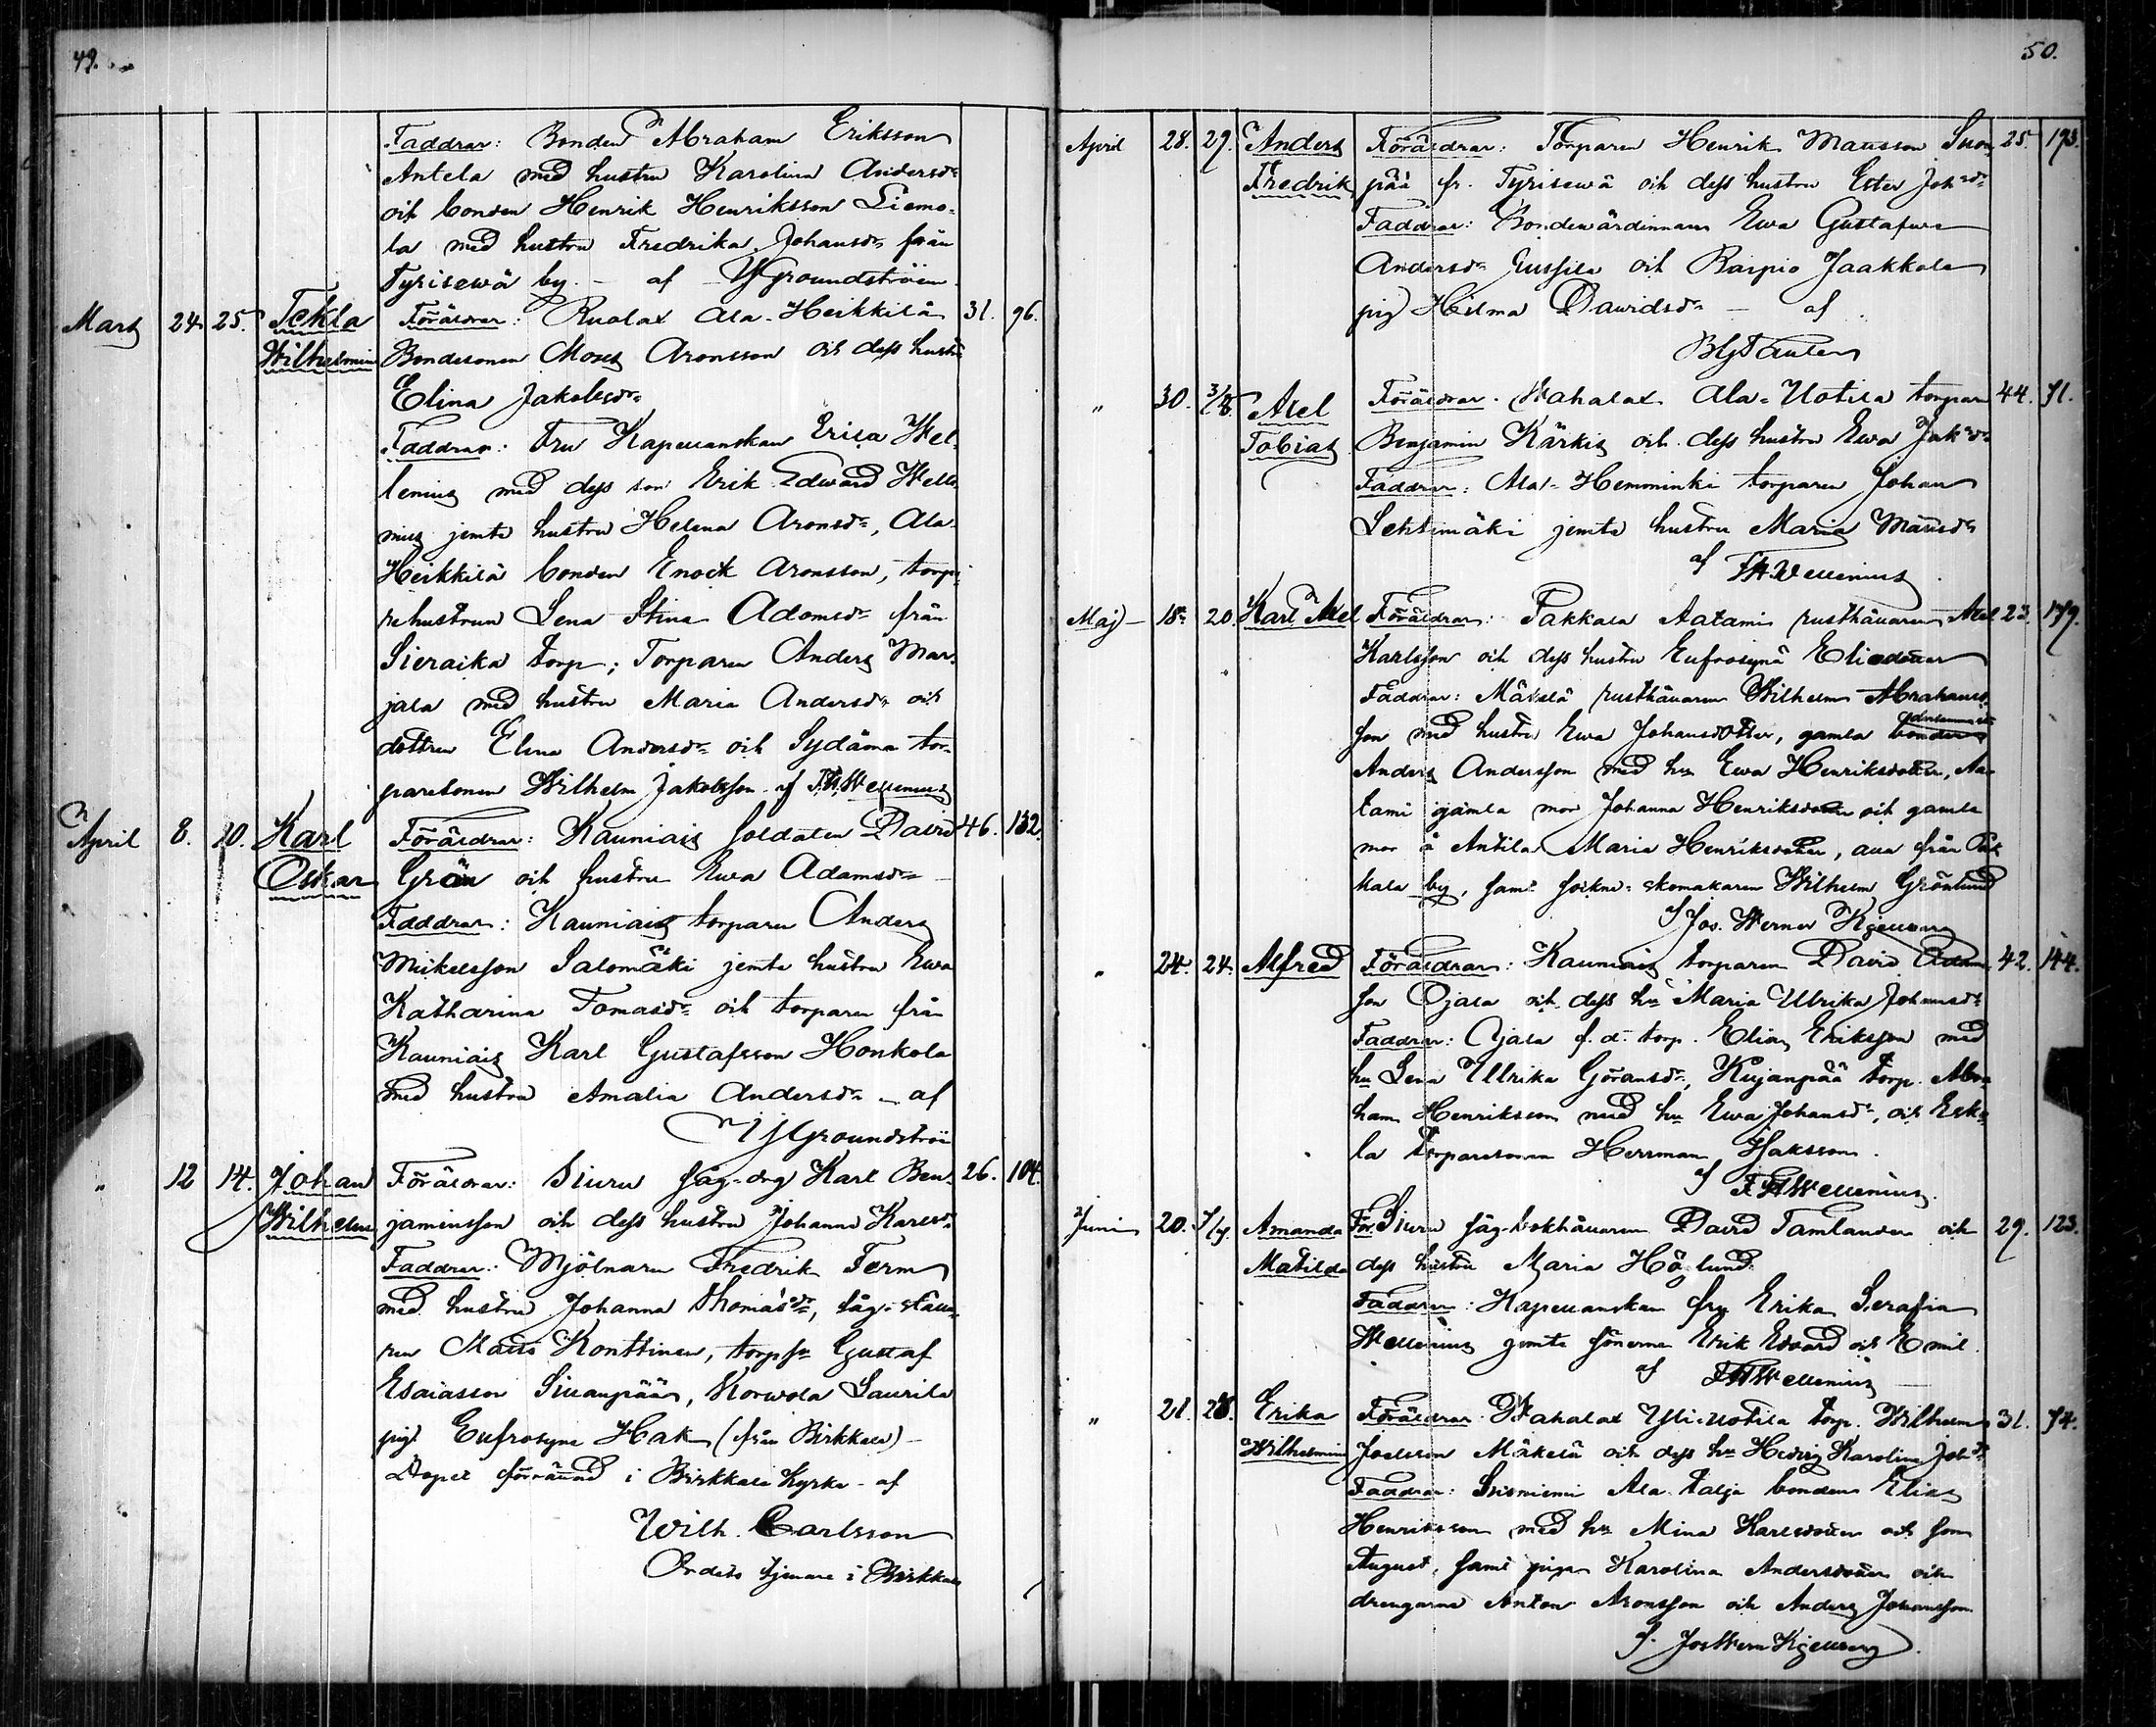 49.
Faddrar: Bonden Abraham Eriksson
Antela med hustru Karolina Andersdr
och bonden Henrik Henriksson Liemo-
la med hustru Fredrika Johansdr från
Tyrisewä by. - af Groundström
Mars 24. 25. Tekla Föräldrar: Rualax Ala-Heikkilä 31. 96.
Wilhelmina Bondesonen Moses Aronsson och dess hustru
Elina Jakobsdr
Faddrar: Fru Kapellanskan Erica Wel-
lenius med dess son Erik Edward Welle-
nius jemte hustru Helena Aronsdr, Ala-
Heikkilä bonden Enock Aronsson, torpa-
rehustrun Lena Stina Adamsdr från
Sieraika torp; Torparen Anders Mar-
jala med hustru Maria Andersdr och
dottren Elina Andersdr och Sydäma tor-
paresonen Wilhelm Jakobsson. af F.W. Wellenius
April 8. 10. Karl Föräldrar: Kauniais soldaten David 46. 132.
Oskar Grön och hustru Ewa Adamsdr
Faddrar: Kauniais torparen Anders
Mikelsson Salomäki jemte hustru Ewa
Katharina Tomasdr och torparen från
Kauniais Karl Gustafsson Honkola
med hustru Amalia Andersdr - af
Groundström
" 12 14. Johan Föräldrar: Siuru såg-drg Karl Ben- 26. 104.
Wilhelm jaminsson och dess hustru Johanna Karlsdr
Faddrar: Mjölnaren Fredrik Term
med hustru Johanna Thomasdr, såg-
ren Matts Konttinen, torpsn Gustaf
Esaiasson Siuanpää, Korwola Laurila
pig. Eufrosyne Hak (från Birkkala) -
Döpet förrättad i Birkkala Kyrka - af
Wilh. Carlsson
Ordets tjenare i Birkkala
50.
April 28. 29. Anders Föräldrar: Torparen Henrik Mattsson Suon- 25. 193.
Fredrik pää fr. Tyrisewä och dess hustru Ester Johsdr
Faddrar: Bondewärdinnan Ewa Gustafwa
Andersdr Jussila och Raipio Jaakkola
pig Hilma Davidsdr - af
" 30. Axel Föräldrar. Wahalax Ala-Uotila torparen 44. 71.
Tobias Benjamin Kärkis och dess hustru Ewa Jaksdr
Faddrar: Ala-Hemminki torparen Johan
Lehtimäki jemte hustru Maria Mattsdr
af F.W. Wellenius
Maj - 18. 20. Karl Axel Föräldrar: Pakkala Aatami rusthållaren Axel 23. 179.
Karlsson och dess hustru Eufrosyna Eliedotter
Faddrar: Mäkelä rusthållaren Wilhelm Abrahams-
son med hustru Ewa Johansdotter, gamla bonden
Anders Andersson med hu Ewa Henriksdotter, Aa-
tami gamla mor Johanna Henriksdotter och gamla
mor å Antila Maria Henriksdotter, alla från Pak-
kala by, samt sockne-skomakaren Wilhelm Grönlund
af Jos. Werner Kjellberg
" 24. 24. Alfred Föräldrar: Kauniais torparen David Adams- 42. 144.
son Ojala och dess hu Maria Ulrika Johansdr
Faddrar: Ojala f.d. torp. Elias Eriksson med
hu Lena Ullrika Göransdr, Kujanpää torp. Abra-
ham Henriksson med hu Ewa Johansdr, och Eske-
la torparesonen Herrman Isaksson.
af F W Wellenius.
Juni 20. Amanda För. Siuru såg-bokhållaren David Tamlander och 29. 123.
Matilda dess hustru Maria Höglund
Faddrar: Kapellanskan fru Erika Serafia
Wellenius jemte sönerna Erik Edvard och Emil.
af F W Wellenius
" 21. Erika Föräldrar: Wahalax Yli-Uotila torp. Wilhelm 31. 74.
Wilhelmina Joelsson Mäkelä och dess hu Hedvig Karolina Johsdr
Faddrar: Sioniemi Ala-Talja bonden Elias
Henriksson med hu Mina Karlsdotter och son
August, samt pigan Karolina Andersdotter och
drengarne Anton Aronsson och Anders Johansson
af. Jos Wern Kjellberg